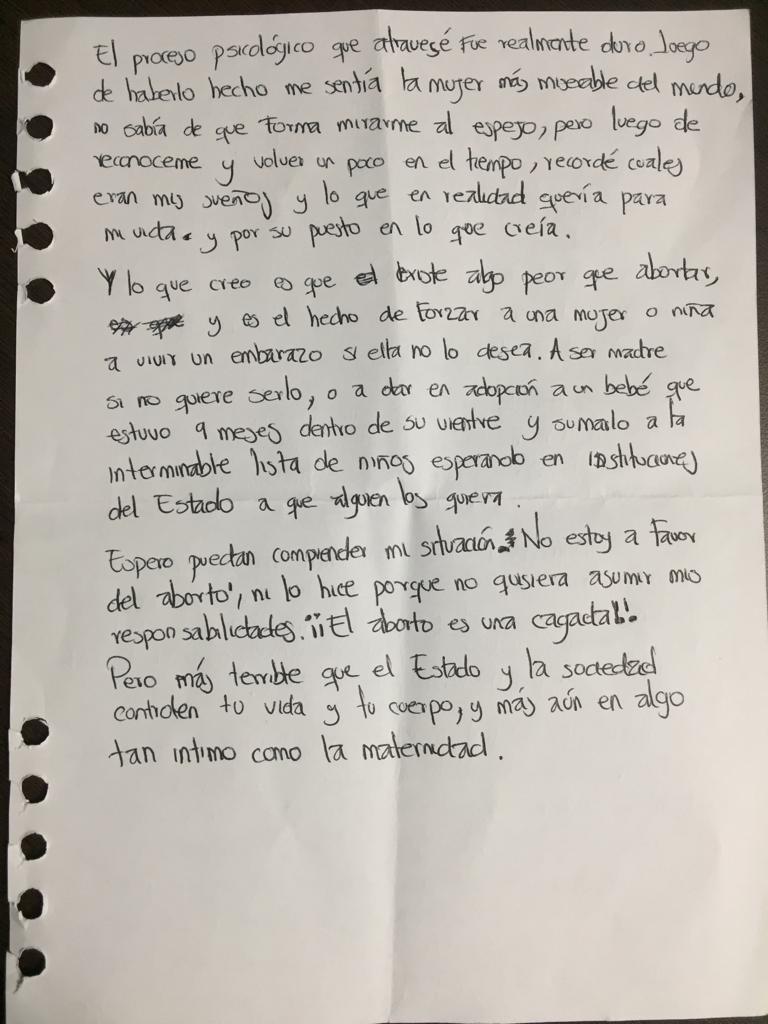 El proceso psicológico que atravesé fue realmente duro. Luego
de haberlo hecho me sentía la mujer más miseable del mundo,
no sabía de que forma mirarme al espejo, pero luego de
reconoceme y volver un poco en el tiempo, recordé cuales
eran mis sueños y lo que en realidad quería para
mi vida. y por su puesto en lo que creía.
Y lo que creo es que existe algo peor que abortar,
y es el hecho de forzar a una mujer o niña
a vivir un embarazo si ella no lo desea. A ser madre
si no quiere serlo, o a dar en adopción a un bebé que
estuvo 9 meses dentro de su vientre y sumarlo a la
interminable lista de niños esperando en instituciones
del Estado a que alguien los quiera.
Espero puedan comprender mi situación. No estoy a favor
del aborto, ni lo hice porque no quisiera asumir mis
responsabilidades. ¡¡El aborto es una cagada!!
Pero más terrible que el Estado y la sociedad
controlen tu vida y tu cuerpo, y más aún en algo
tan intimo como la maternidad.